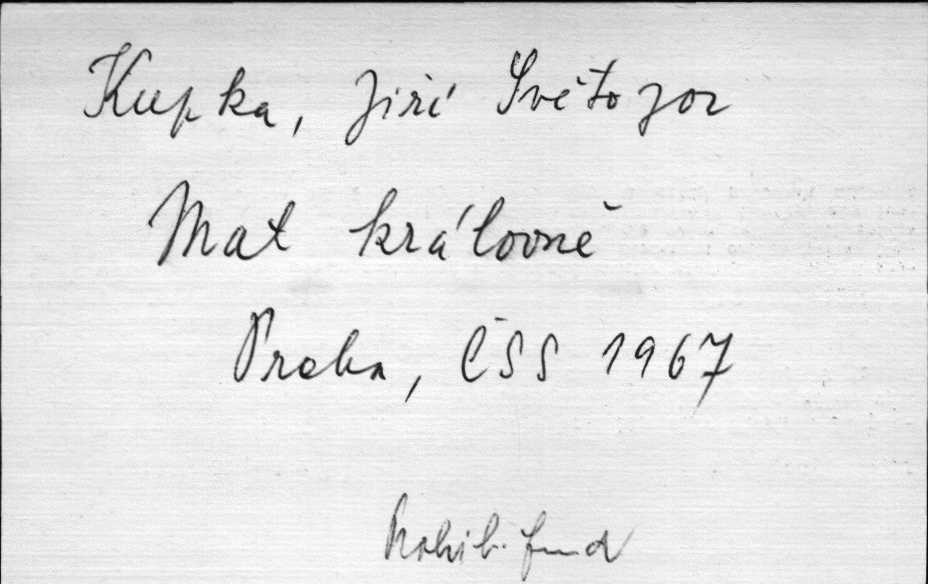 Kupka, Jiří Světozor
Mat královně
Praha, ČSS 1967
Prohib. fond